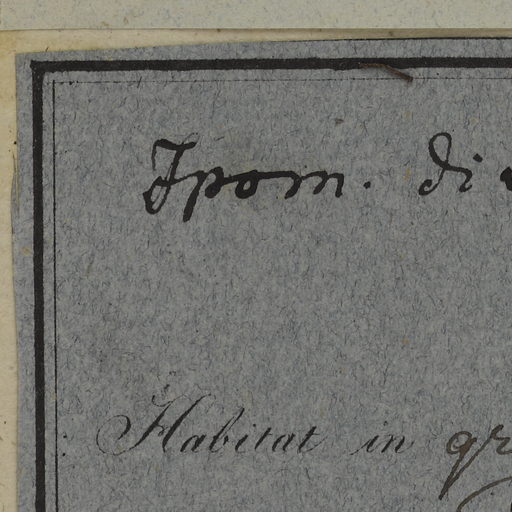 Ipom. di
Habitat in gr